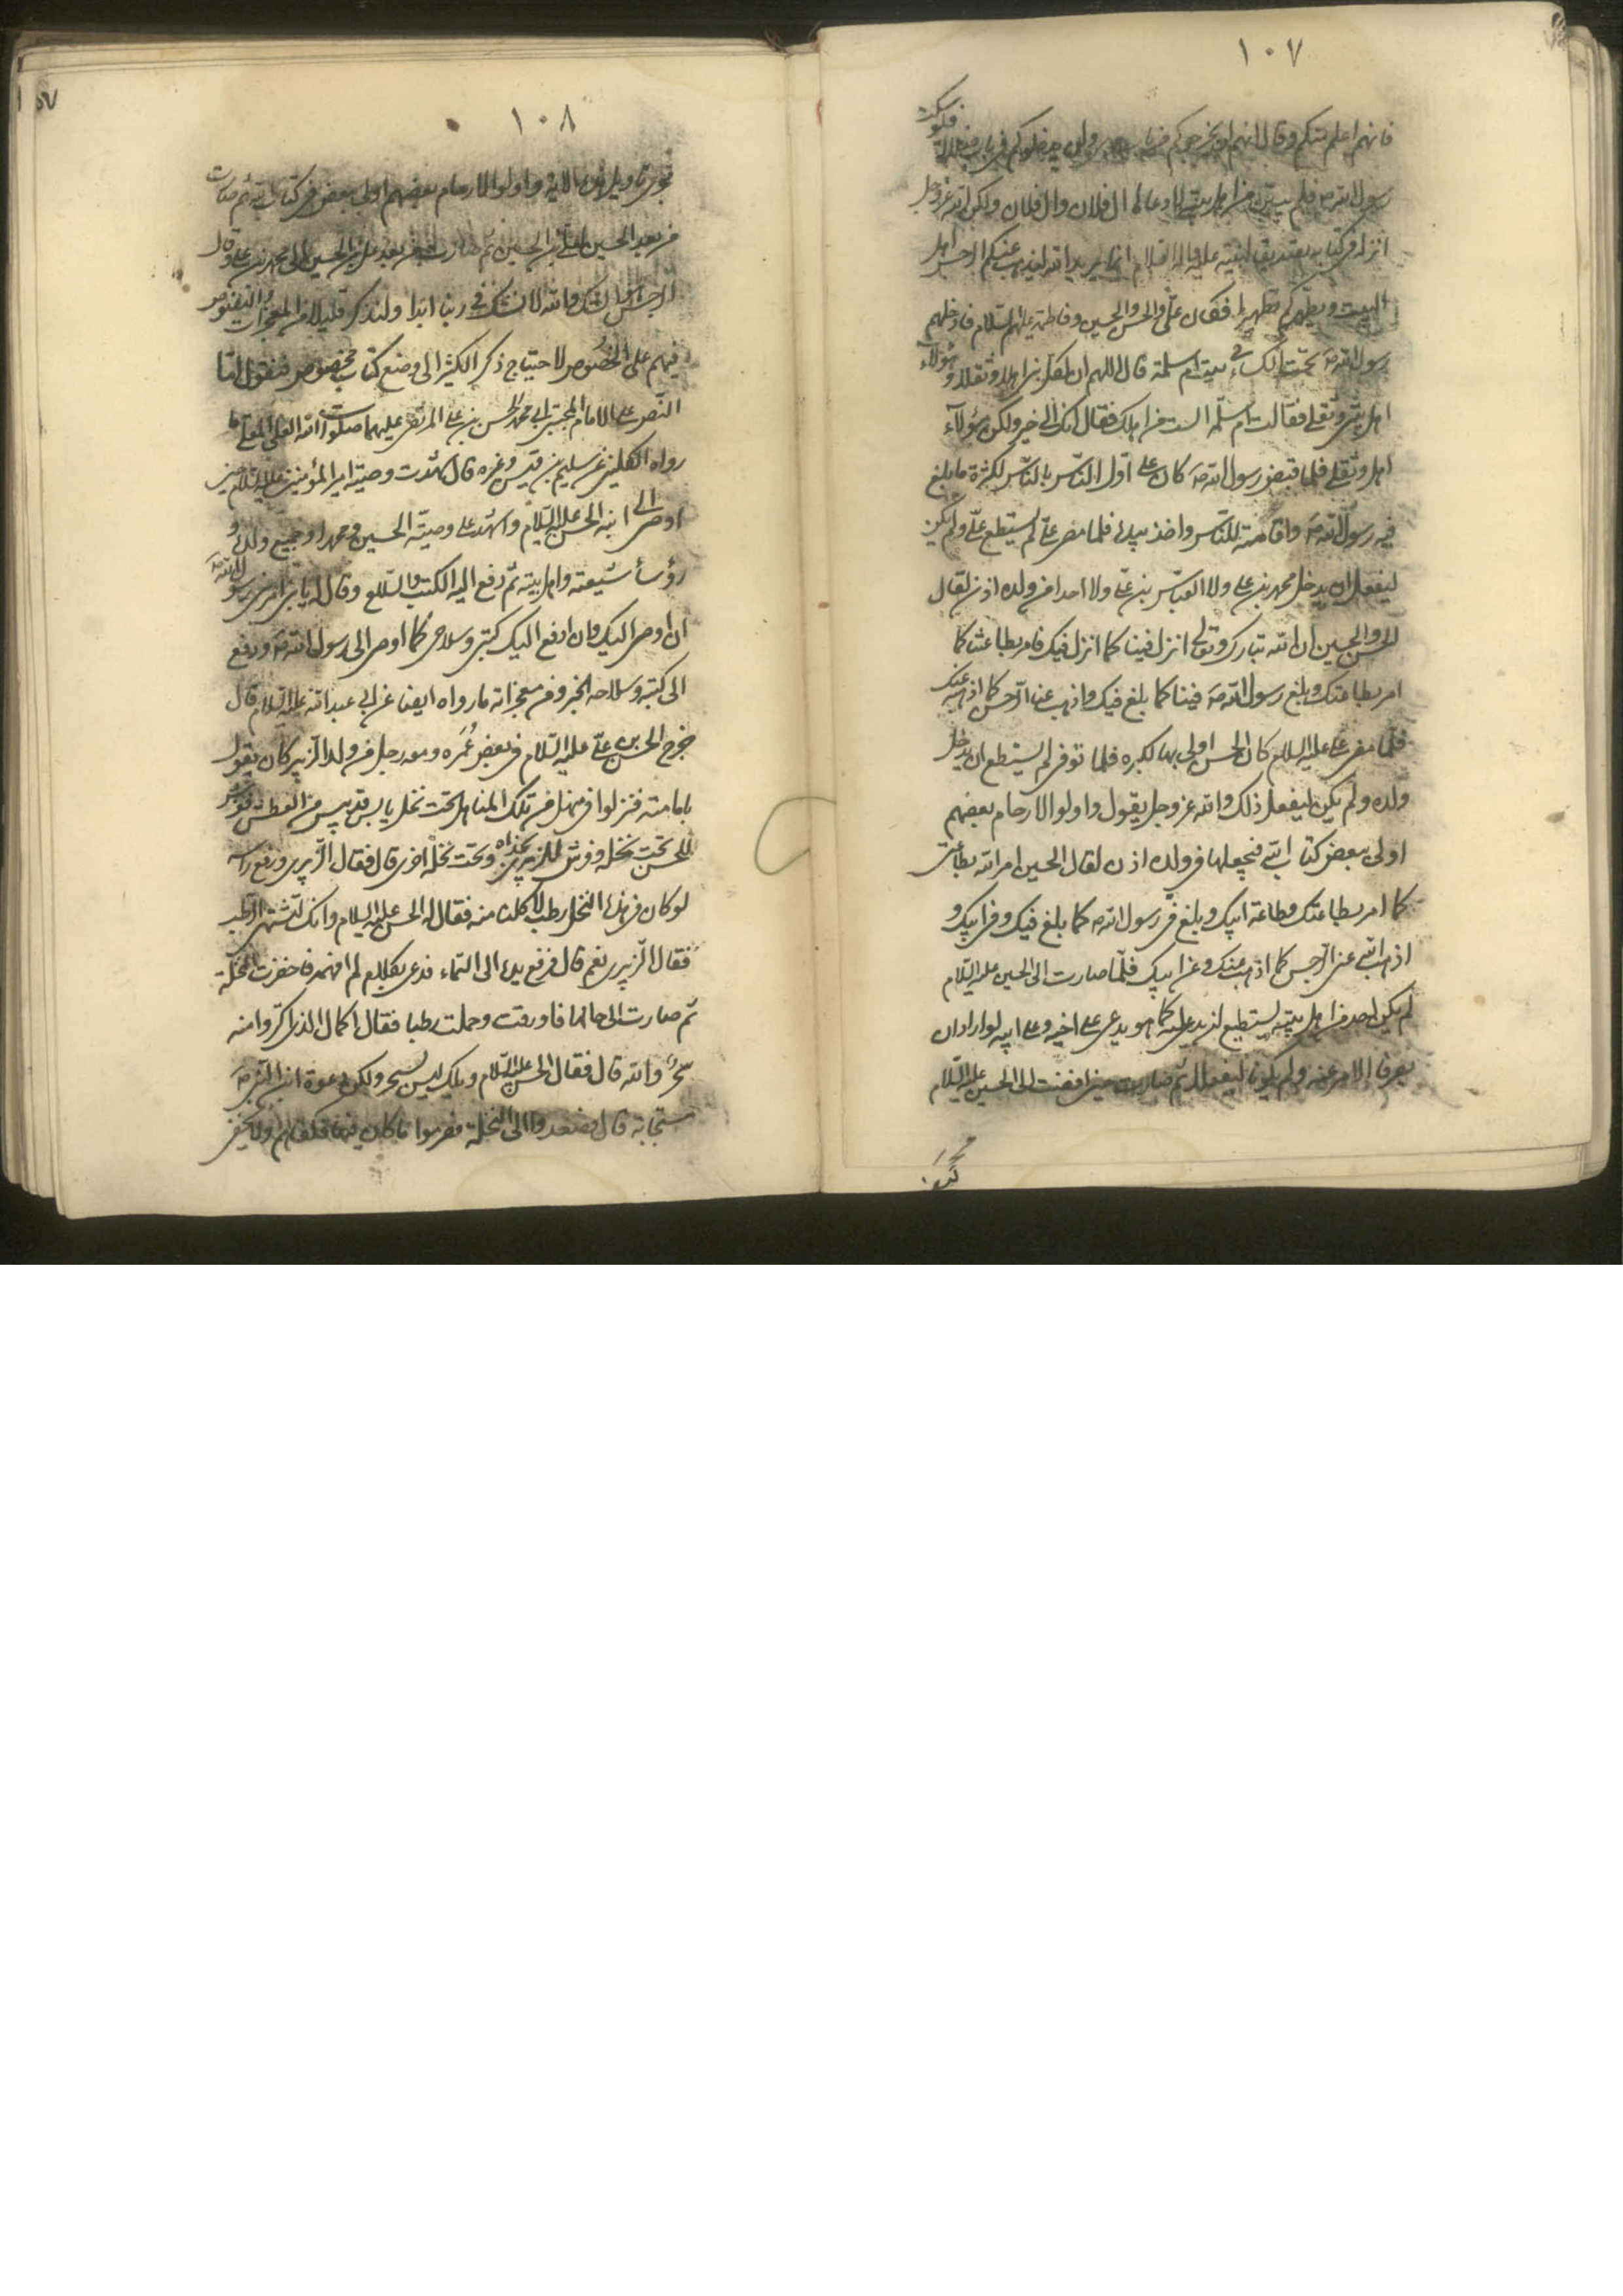 ١٠٧
فانهم اعلم منكم وقال انهم لن يخرجوكم من باب هدى ولن يدخلوكم في باب ضلالة فلو سكت
رسول الله ص فلم يبين من اهل بيته لادعاها ال فلان وال فلان ولكن الله عز وجل
انزل في كتابه تصديقا لنبيه عليه واله السلام انما يريد الله ليذهب عنكم الرجس اهل
البيت ويطهركم تطهيرا فكان علي والحسن والحسين وفاطمة عليهم السلام فادخلهم
رسول الله ص تحت الكساء في بيت ام سلمة ثم قال اللهم ان لكل نبي اهلا وثقلا وهؤلاء
اهل بيتي وثقلي فقالت ام سلمة الست من اهلك فقال انك الى خير ولكن هؤلآء
اهلي وثقلي فلما قبض رسول الله ص كان علي اولى الناس بالناس لكثرة ما بلغ
فيه رسول الله ص واقامته للناس واخذ بيده فلما مضى علي لم يستطع علي ولم يكن
ليفعل ان يدخل محمد بن علي ولا العباس بن علي ولا احدا من ولده اذن لقال
الحسن والحسين ان الله تبارك وتعالى انزل فينا كما انزل فيك فامر بطاعتنا كما
امر بطاعتك وبلغ رسول الله ص فينا كما بلغ فيك واذهب عنا الرجس كما اذهبه عنك
فلما مضى علي عليه السلام كان الحسن اولى بها لكبره فلما توفى لم يستطع ان يدخل
ولده ولم يكن ليفعل ذلك والله عز وجل يقول واولوا الارحام بعضهم
اولى ببعض كتاب الله فيجعلها في ولده اذن لقال الحسين امر الله بطاعتى
كما امر بطاعتك وطاعة ابيك وبلغ في رسول الله ص كما بلغ فيك وفى ابيك و
اذهب الله عنى الرجس كما اذهب عنك وعن ابيك فلما صارت الى الحسين عليه السلام
لم يكن احد من اهل بيته يستطيع ان يدعى عليه كما هو يدعى على اخيه وعلى ابيه لو ارادا ان
يصرفا الامر عنه ولم يكونا ليفعلا ثم صارت حين افضت الى الحسين عليه السلام
١٠٨
تجرى تاويل هذه الاية واولوا الارحام بعضهم اولى ببعض في كتاب الله ثم صارت
من بعد الحسين لعلى بن الحسين ثم صارت من بعد على بن الحسين الى محمد بن على وقال
الرجس هو الشك والله لا نشك في ربنا ابدا ولنذكر قليلا من المعجزات والنصوص
فيهم على الخصوص لاحتياج ذكر الكثير الى وضع كتاب مخصوص فنقول اما
النص على الامام المجتبى ابي محمد الحسن بن علي المرتضى عليهما صلوات الله العلي الاعلى ما
رواه الكلينى عن سليم بن قيس وغيره قال شهدت وصية امير المؤمنين عليه السلام حين
اوصى الى ابنه الحسن عليه السلام واشهد على وصيته الحسين ومحمدا وجميع ولده و
رؤسآء شيعته واهل بيته ثم دفع اليه الكتب والسلاح وقال له يا بنى امرنى رسول الله ص
ان اوصى اليك وان ادفع اليك كتبى وسلاحى كما اوصى الى رسول الله ص ودفع
الى كتبه وسلاحه الخبر ومن معجزاته ما رواه ايضا عن ابي عبد الله عليه السلام قال
خرج الحسن بن علي عليه السلام في بعض عُمَره ومعه رجل من ولد الزبير كان يقول
بامامته فنزلوا في منهل من تلك المناهل تحت نخل يابس قد يبس من العطش ففرش
للحسن تحت نخلة وفرش للزبيرى بحذاه وتحت نخلة اخرى قال فقال الزبيرى ورفع راسه
لو كان في هذا النخل رطب لاكلنا منه فقال له الحسن عليه السلام وانك لتشتهى الرطب
فقال الزبيرى نعم قال فرفع يده الى السماء فدعى بكلام لم افهمه فاخضرت النخلة
ثم صارت الى حالها فاورقت وحملت رطبا فقال الجمال الذى اكتروا منه
سحرٌ والله قال فقال الحسن عليه السلام ويلك ليس بسحر ولكن دعوة ابن النبي ص
مستجابة قال فصعدوا الى النخلة فصرموا ما كان فيها فكفاهم